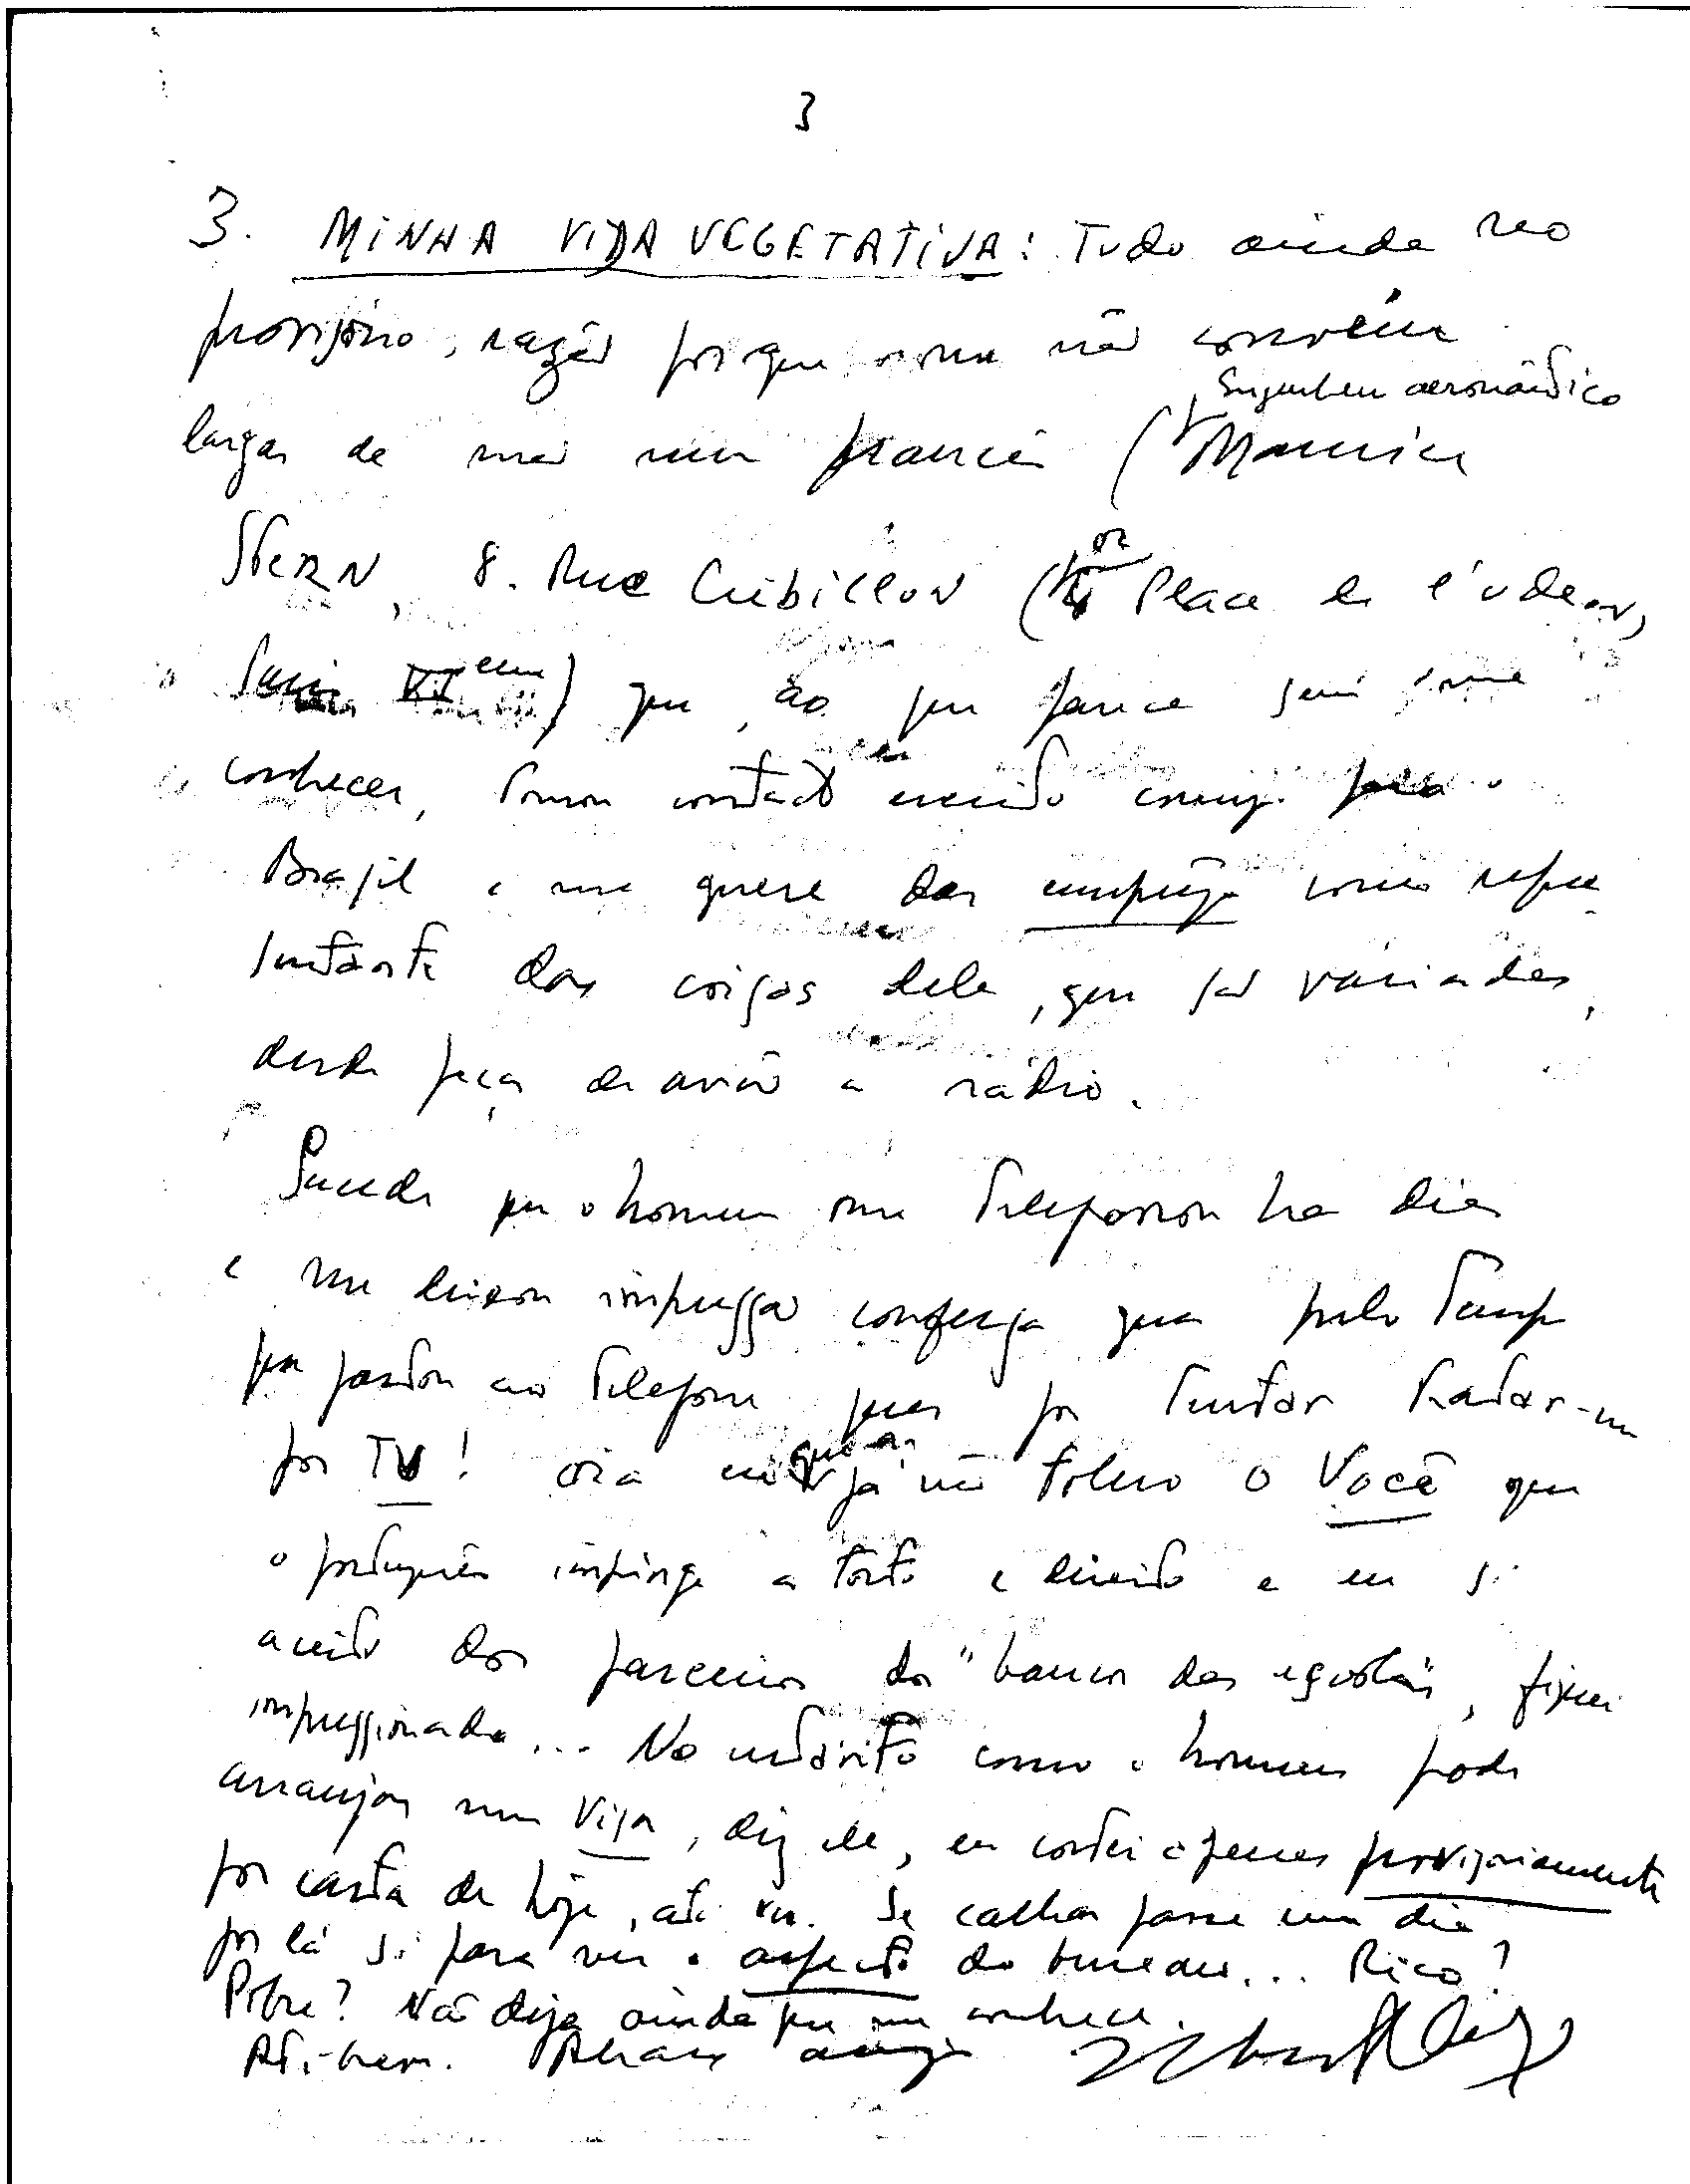 3
3. MINHA VIDA VEGETATIVA: Tudo ainda no
provisório, razão porque não convém
Engenheiro aeronáutico
largar de mão um francês (Maurice
STERN, 8. Rue Crébillon (Place de l'Odeon,
Paris VI eme) que, ao que parece sem me
conhecer, tomou contacto escrito comigo para o
Brasil e me quere dar emprêgo como repre
sentante das coisas dele, que são variadas,
desde peças de avião a rádio.
Sucede que o homem me telefonou ha dias
e me deixou impressão confusa quer pelo tempo
que gastou ao telefone quer por tentar tratar-me
por TU! Ora eu que já não tolero o Você que
o português impinge a torto e direito e eu só
aceito dos parceiros do "banco das escolas", fiquei
impressionado... No entanto como o homem pode
arranjar um visa, diz ele, eu cortei apenas provisoriamente
por carta de hoje, até ver. Se calhar passe um dia
por lá só para ver o aspecto do bureau... Rico?
Pobre? Não diga ainda que me conhece.
Até breve. Abraço amigo